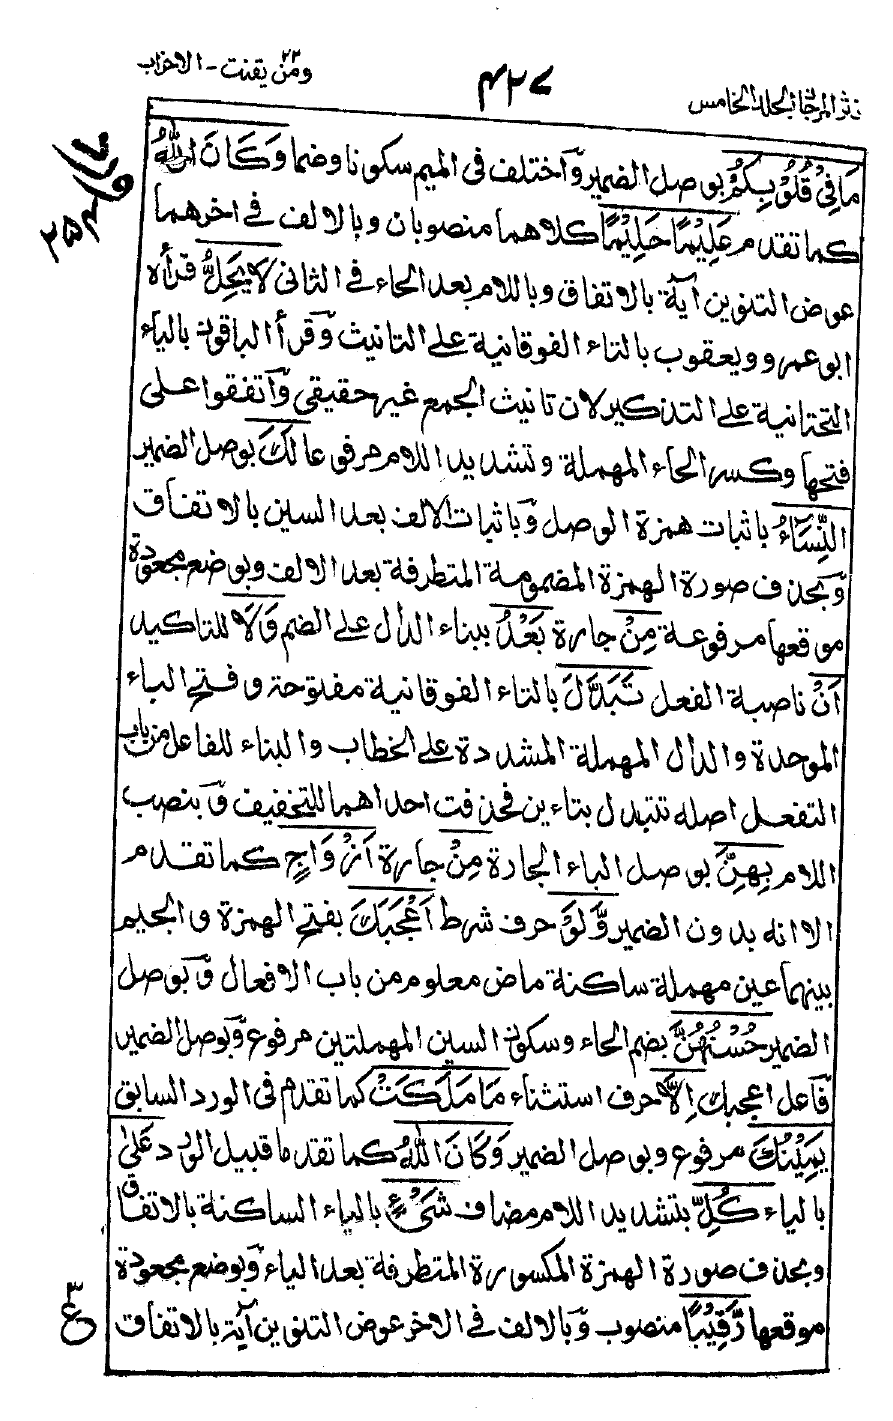 نثر المرجان المجلد الخامس
۴۲۷
ومن يقنت ۲۲ - الاحزاب
مَا فِيْ قُلُوْبِكُمْ بوصل الضمير وّاختلف فى الميم سكونا وضما وَكَانَ اللّٰهُ
كما تقدم عَلِيْمًا حَلِيْمًا كلاهما منصوبان وبالالف فى اخرهما
عوض التنوين آية بالاتفاق وباللام بعد الحاء فى الثانى لَا يَحِلُّ قرأه
ابو عمرو ويعقوب بالتاء الفوقانية على التانيث وّقرأ الباقون بالياء
التحتانية على التذكير لان تانيث الجمع غير حقيقى وّاتفقوا على
فتحها وكسر الحاء المهملة وتشديد اللام مرفوعا لَكَ بوصل الضمير
النِّسَاءُ باثبات همزة الوصل وّباثبات الالف بعد السين بالاتفاق
وّبحذف صورة الهمزة المضمومة المتطرفة بعد الالف وبوضع مجعودة
موقعها مرفوعة مِنْ جارة بَعْدُ ببناء الدال على الضم وَلَا للتاكيد
اَنْ ناصبة الفعل تَبَدَّلَ بالتاء الفوقانية مفتوحة وفتح الباء
الموحدة والدال المهملة المشددة على الخطاب والبناء للفاعل من باب
التفعل اصله تتبدل بتاءين فحذفت احداهما للتخفيف وّبنصب
اللام بِهِنَّ بوصل الباء الجارة مِنْ جارة اَزْوَاجٍ كما تقدم
الا انه بدون الضمير وَّلَوْ حرف شرط اَعْجَبَكَ بفتح الهمزة والجيم
بينهما عين مهملة ساكنة ماض معلوم من باب الافعال وّبوصل
الضمير حُسْنُهُنَّ بضم الحاء وسكون السين المهملتين مرفوع وّبوصل الضمير
فاعل اعجبك اِلَّا حرف استثناء مَا مَلَكَتْ كما تقدم فى الورد السابق
يَمِيْنُكَ مرفوع وبوصل الضمير وَكَانَ اللّٰهُ كما تقدم ما قبيل الورد عَلٰى
بالياء كُلِّ بتشديد اللام مضاف شَيْءٍ بالياء الساكنة بالاتفاق
وبحذف صورة الهمزة المكسورة المتطرفة بعد الياء وّبوضع مجعودة
موقعها رَّقِيْبًا منصوب وّبالالف فى الاخر عوض التنوين آية بالاتفاق
ع
۳